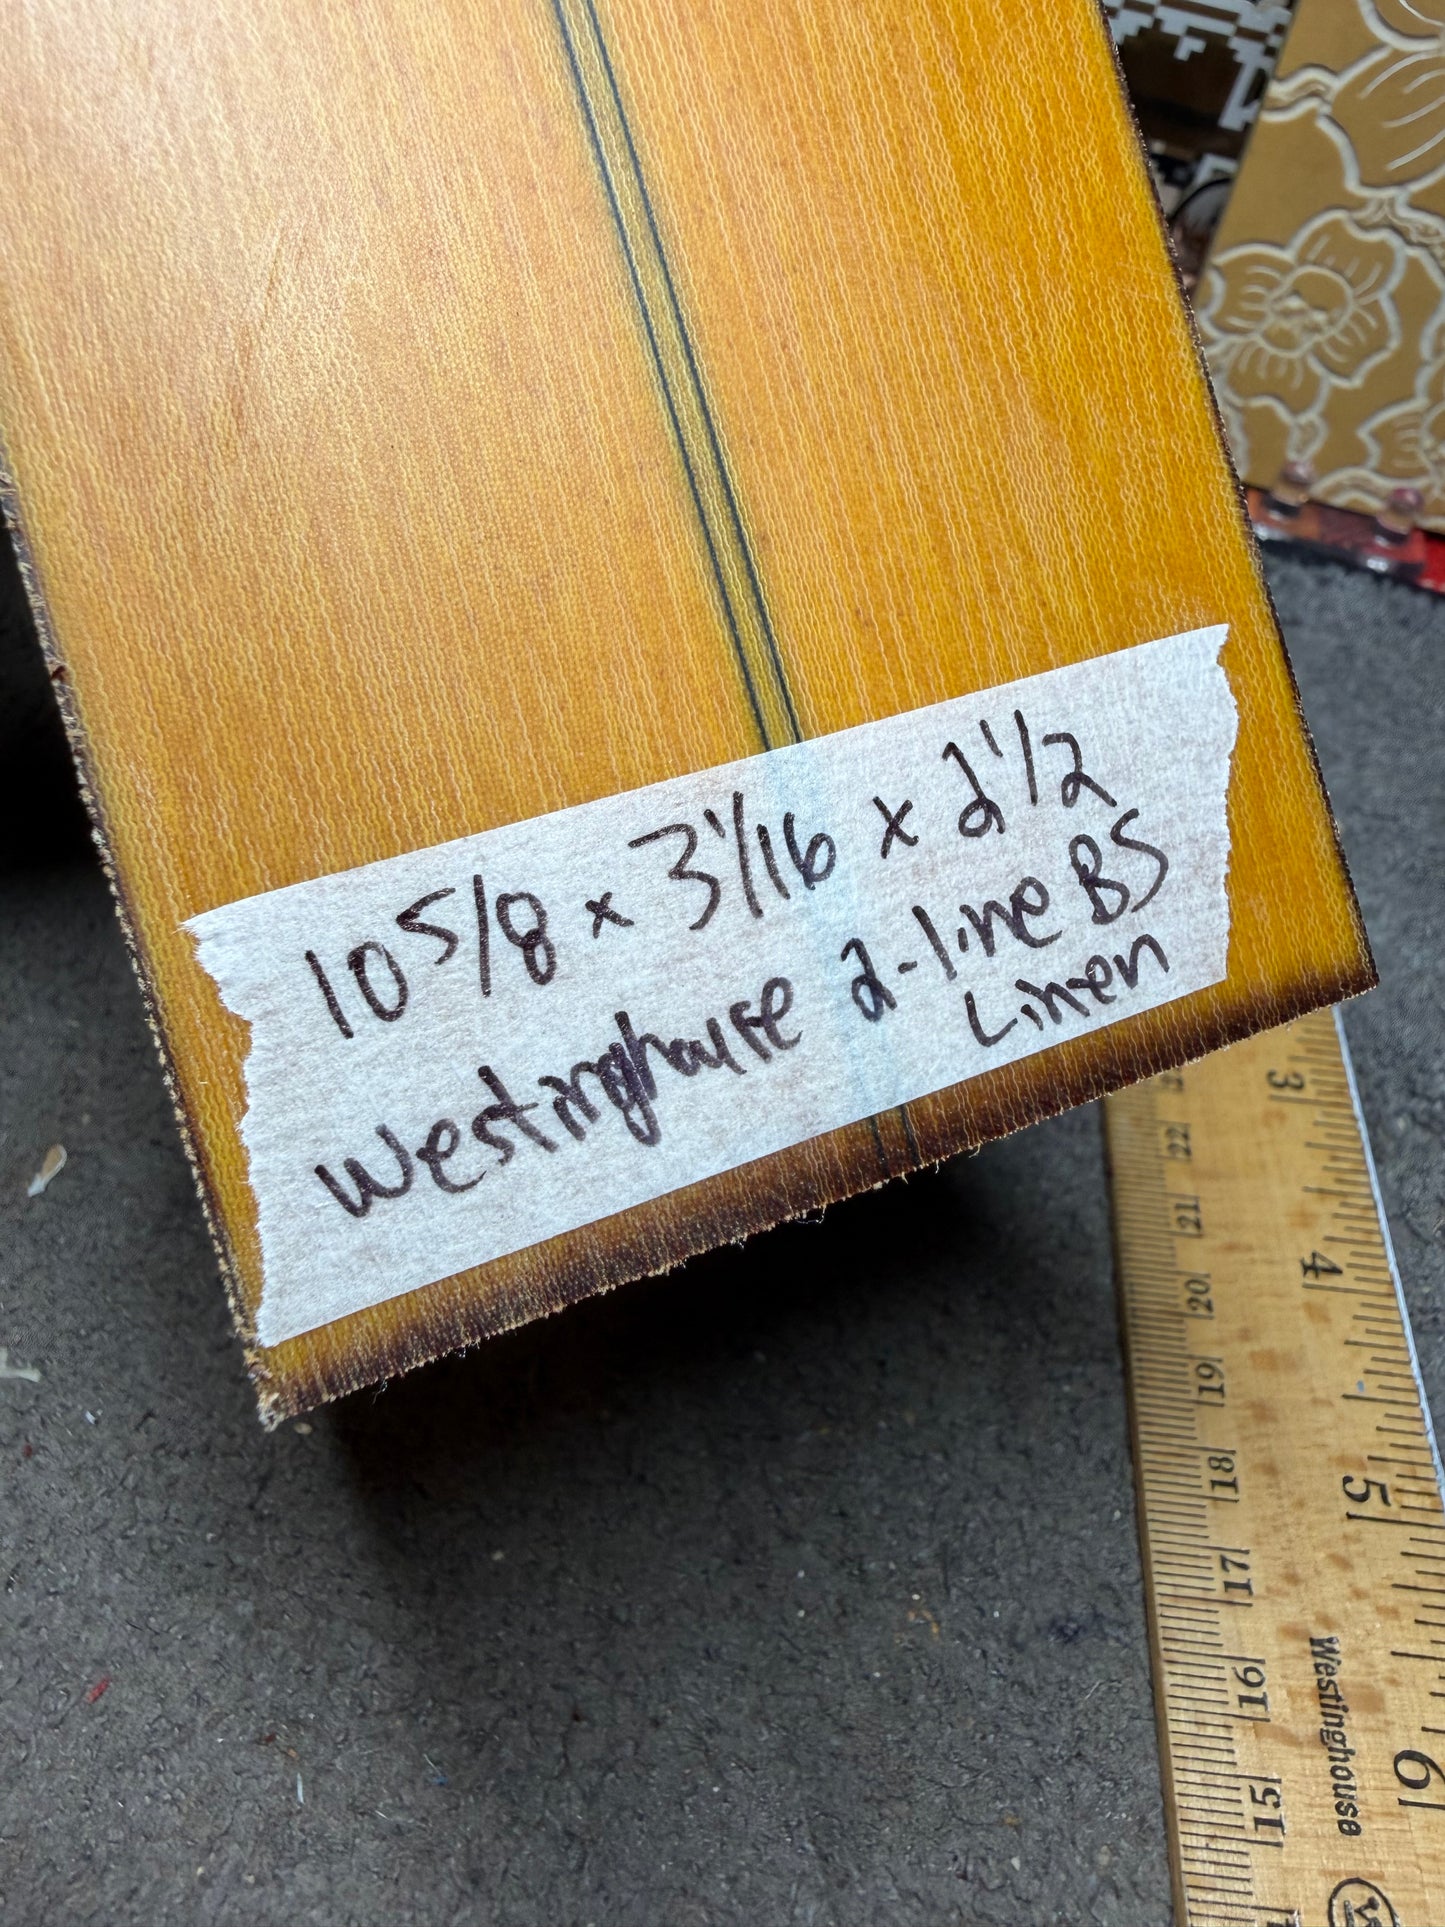 10 5/8 x 3 1/16 x 2 1/2
Westinghouse 2-line BS
Linen
3
4
5
6
22
21
20
19
18
17
16
15
Westinghouse